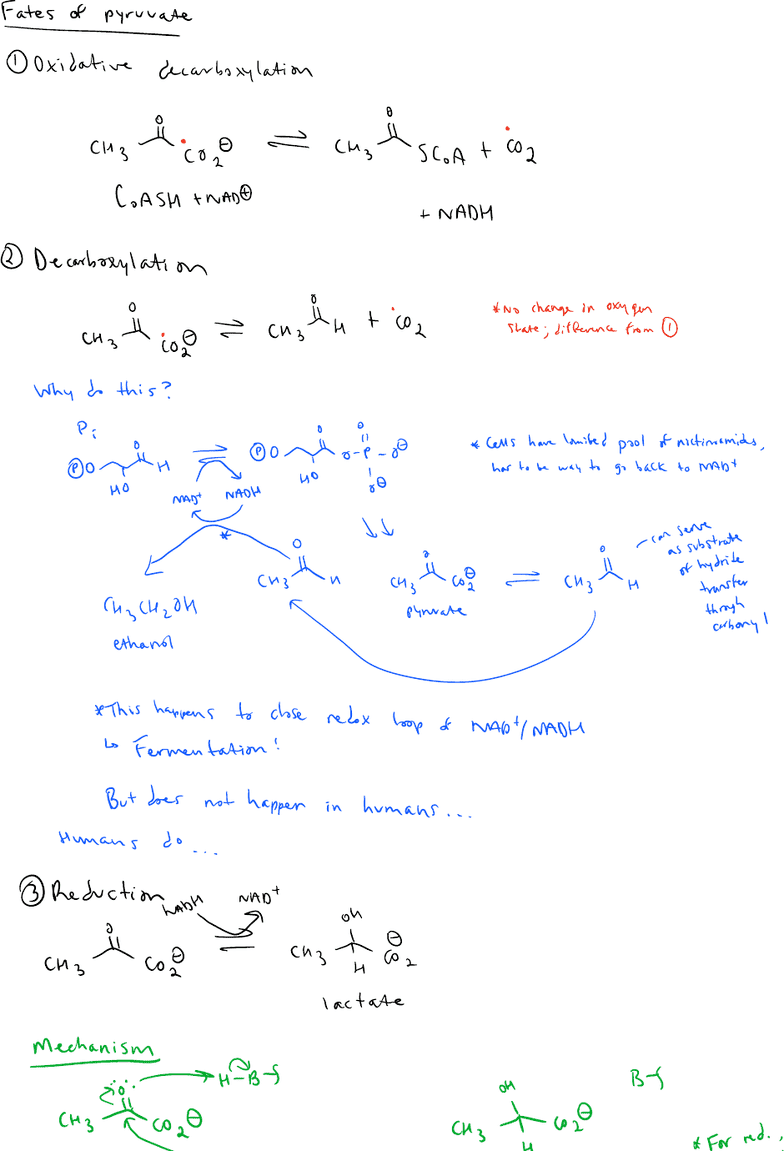 Fates of pyruvate
① Oxidative decarboxylation
O O
CH3 CO2⊖ ⇌ CH3 SCoA + CO2
CoASH + NAD⊕
+ NADH
② Decarboxylation
O O
CH3 CO2⊖ ⇌ CH3 H + CO2
*No change in oxygen
state; difference from ①
Why do this?
Pi
O O O
ⓅO H ⇌ ⓅO O-P-O⊖
HO HO O⊖
NAD+ NADH
* Cells have limited pool of nictinamids,
has to be way to go back to NAD+
*
O O O
CH3 H CH3 CO2⊖ ⇌ CH3 H
can serve
as substrate
of hydrite
transfer
through
carbonyl
CH3CH2OH
pyruvate
ethanol
*This happens to close redox loop of NAD+/NADH
↳ Fermentation!
But does not happen in humans...
Humans do...
③ Reduction NADH NAD+
O OH
CH3 CO2⊖ ⇌ CH3 H CO2⊖
lactate
Mechanism
H-B B
O OH
CH3 CO2⊖ CH3 CO2⊖
H
* For red.,